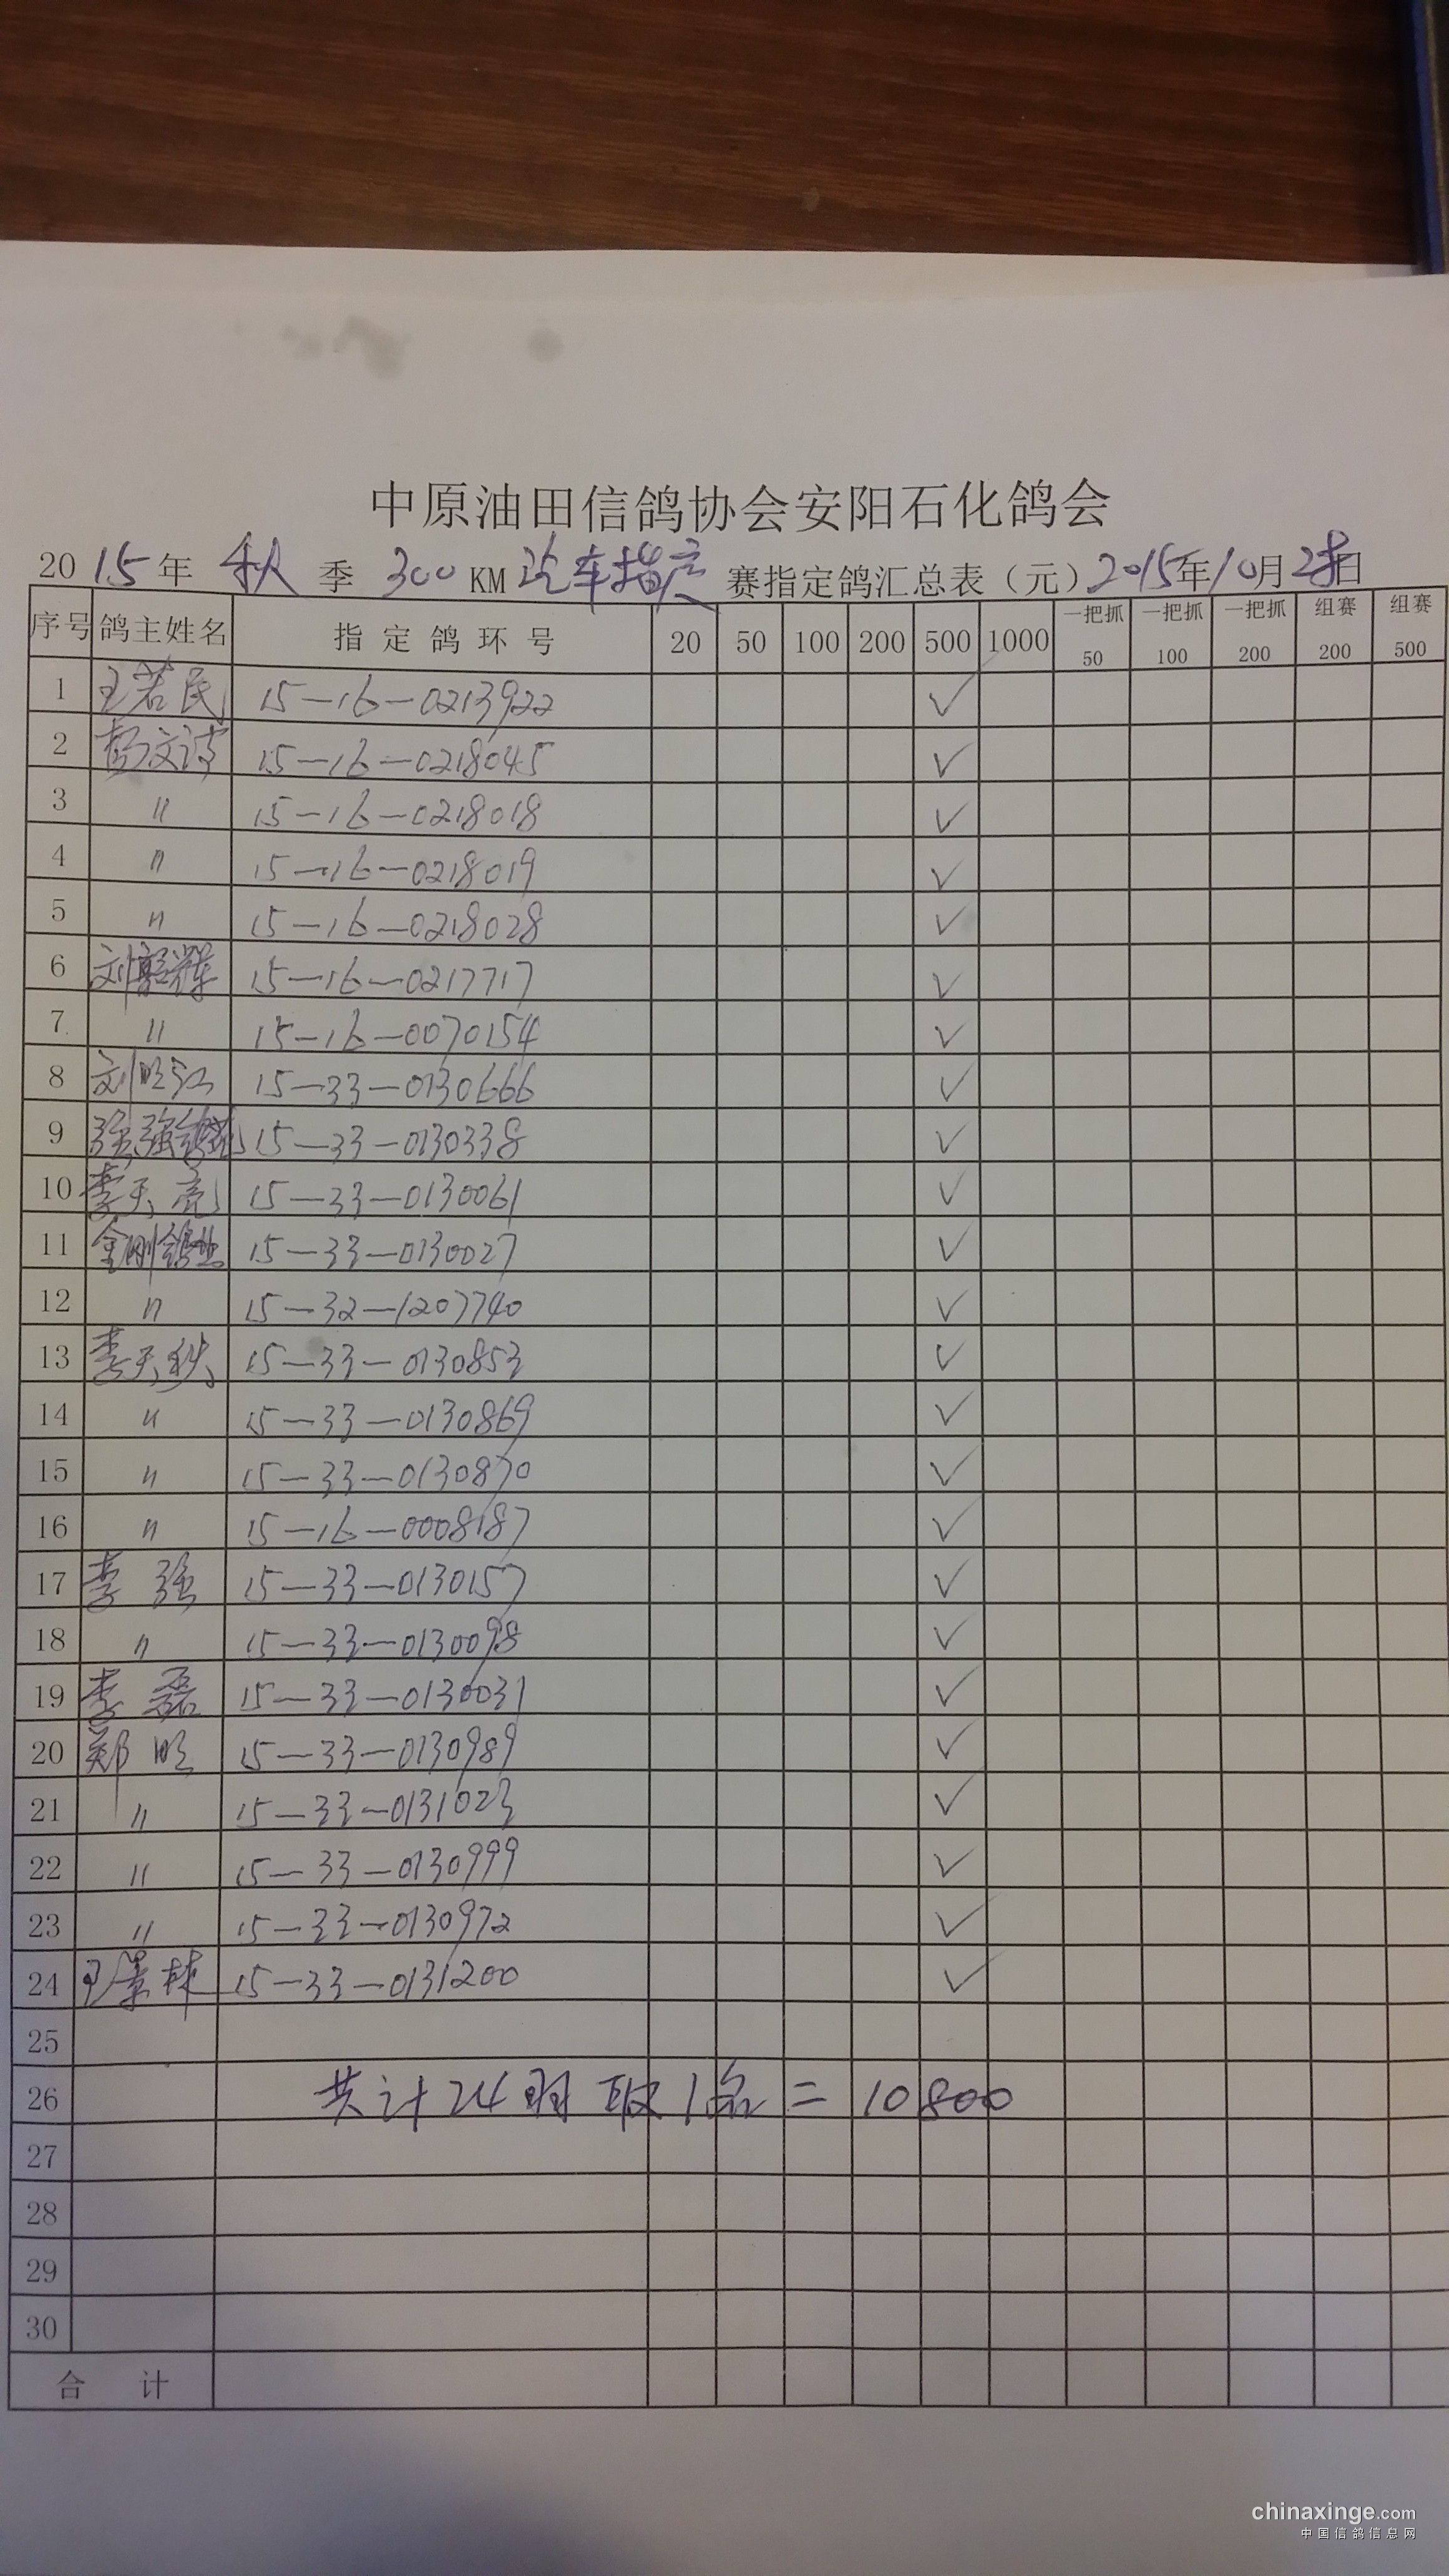 中原油田信鸽协会安阳石化鸽会
2015年 秋 季 300KM 汽车指定 赛指定鸽汇总表（元）2015年10月2日
序号 鸽主姓名 指定鸽环号 20 50 100 200 500 1000 一把抓50 一把抓100 一把抓200 组赛200 组赛500
1 王若民 15-16-0213922 ✓
2 彭文波 15-16-0218045 ✓
3 〃 15-16-0218018 ✓
4 〃 15-16-0218019 ✓
5 〃 15-16-0218028 ✓
6 刘 15-16-0217717 ✓
7 〃 15-16-0070154 ✓
8 刘明江 15-33-0130666 ✓
9 15-33-0130338 ✓
10 李天亮 15-33-0130061 ✓
11 金刚鸽业 15-33-0130027 ✓
12 〃 15-32-1207740 ✓
13 李天秋 15-33-0130853 ✓
14 〃 15-33-0130869 ✓
15 〃 15-33-0130870 ✓
16 〃 15-16-0008187 ✓
17 李强 15-33-0130157 ✓
18 〃 15-33-0130098 ✓
19 李磊 15-33-0130031 ✓
20 郑明 15-33-0130989 ✓
21 〃 15-33-0131023 ✓
22 〃 15-33-0130999 ✓
23 〃 15-33-0130972 ✓
24 王景林 15-33-0131200 ✓
25
26 共计24羽取1名=10800
27
28
29
30
合计
chinaxinge.com
中国信鸽信息网